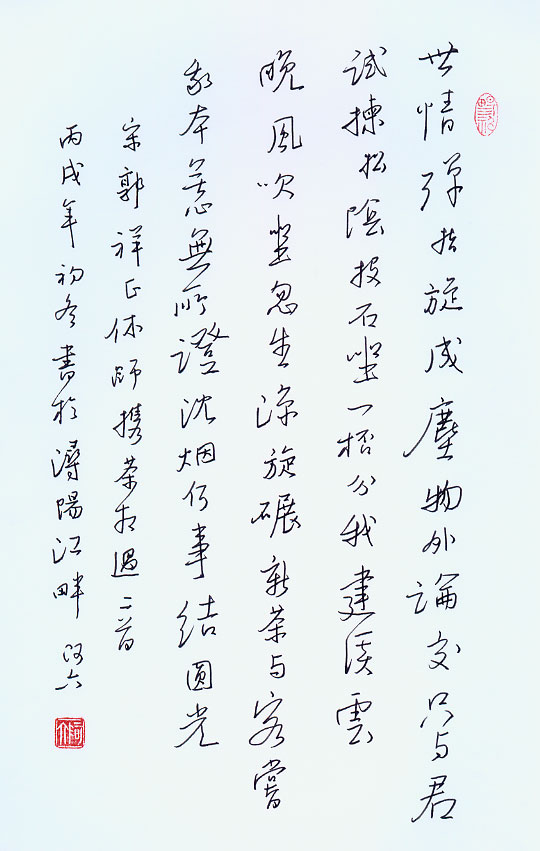 世情弹指旋成塵物外論交只与君
試揀松陰投石坐一桮分我建溪雲
晚風吹坐忽生涼旋碾新茶与客嘗
我本無所證沈烟何事結圓光
宋郭祥正休師携茶相過二首
丙戌年初冬書於潯陽江畔 阿六